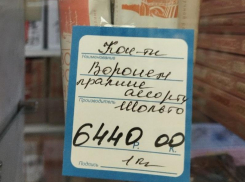 Кон-ты
Наименование
Воронеж
пралине
ассорти
Производитель Шольто
6440 р. 00 к.
1 кг
Подпись